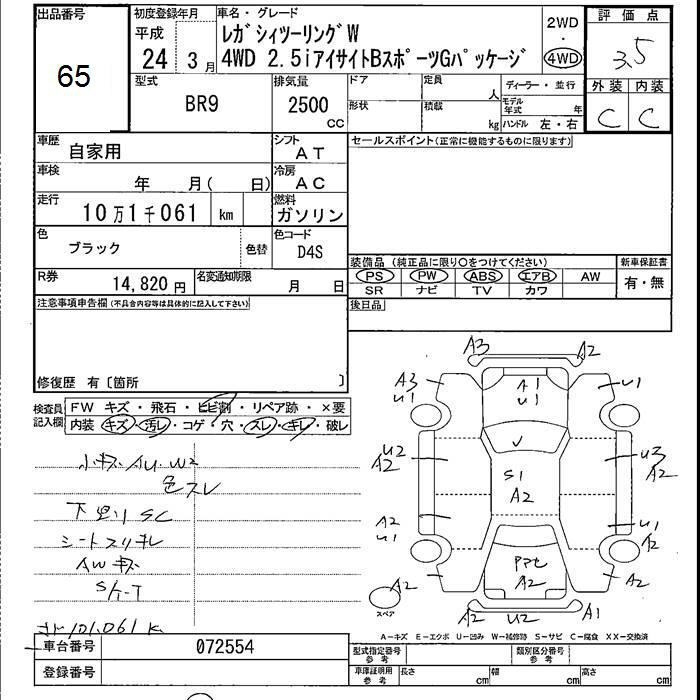 出品番号
65
初度登録年月
平成
24 3月
車名・グレード
レガシィツーリングW
4WD 2.5iアイサイトBスポーツGパッケージ
2WD
・
4WD
評価点
3.5
外装 内装
C C
型式
BR9
排気量
2500
CC
ドア
形状
定員
人
積載
kg
ディーラー・並行
モデル年式 年
ハンドル 左・右
車歴
自家用
シフト
AT
セールスポイント(正常に機能するものに限ります)
車検
年 月( 日)
冷房
AC
走行
10万1千061 km
燃料
ガソリン
色
ブラック
色替
色コード
D4S
装備品(純正品に限り○をつけてください)
PS PW ABS エアB AW
SR ナビ TV カワ
新車保証書
有・無
R券
14,820円
名変通知期限
月 日
後日品
注意事項申告欄(不具合内容等は具体的に記入して下さい)
修復歴 有〔箇所 〕
検査員記入欄
FW キズ・飛石・ヒビ割・リペア跡・×要
内装 キズ・汚レ・コゲ・穴・スレ・キレ・破レ
小キズ AU.W2
色スレ
下廻り SC
シートスリキレ
AWキズ
S/T-T
101,061K
車台番号
072554
登録番号
A3 A2
A3 U1
A1 U1
U1
U2 A2
U3 A2
S1 A2
A2 U1
U1 A2
A2
A2
A2
A2 U2 A1
スペア
A-キズ E-エクボ U-凹み W-補修跡 S-サビ C-腐食 XX-交換済
型式指定番号
参考
類別区分番号
参考
車庫証明用
参考
長さ cm 幅 cm 高さ cm